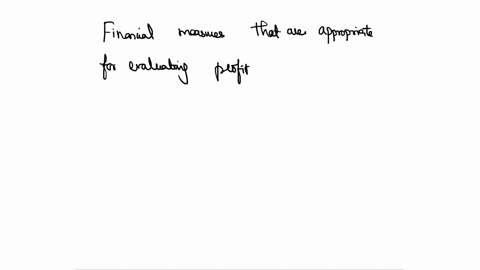 Financial measures that are appropriate
for evaluating profit